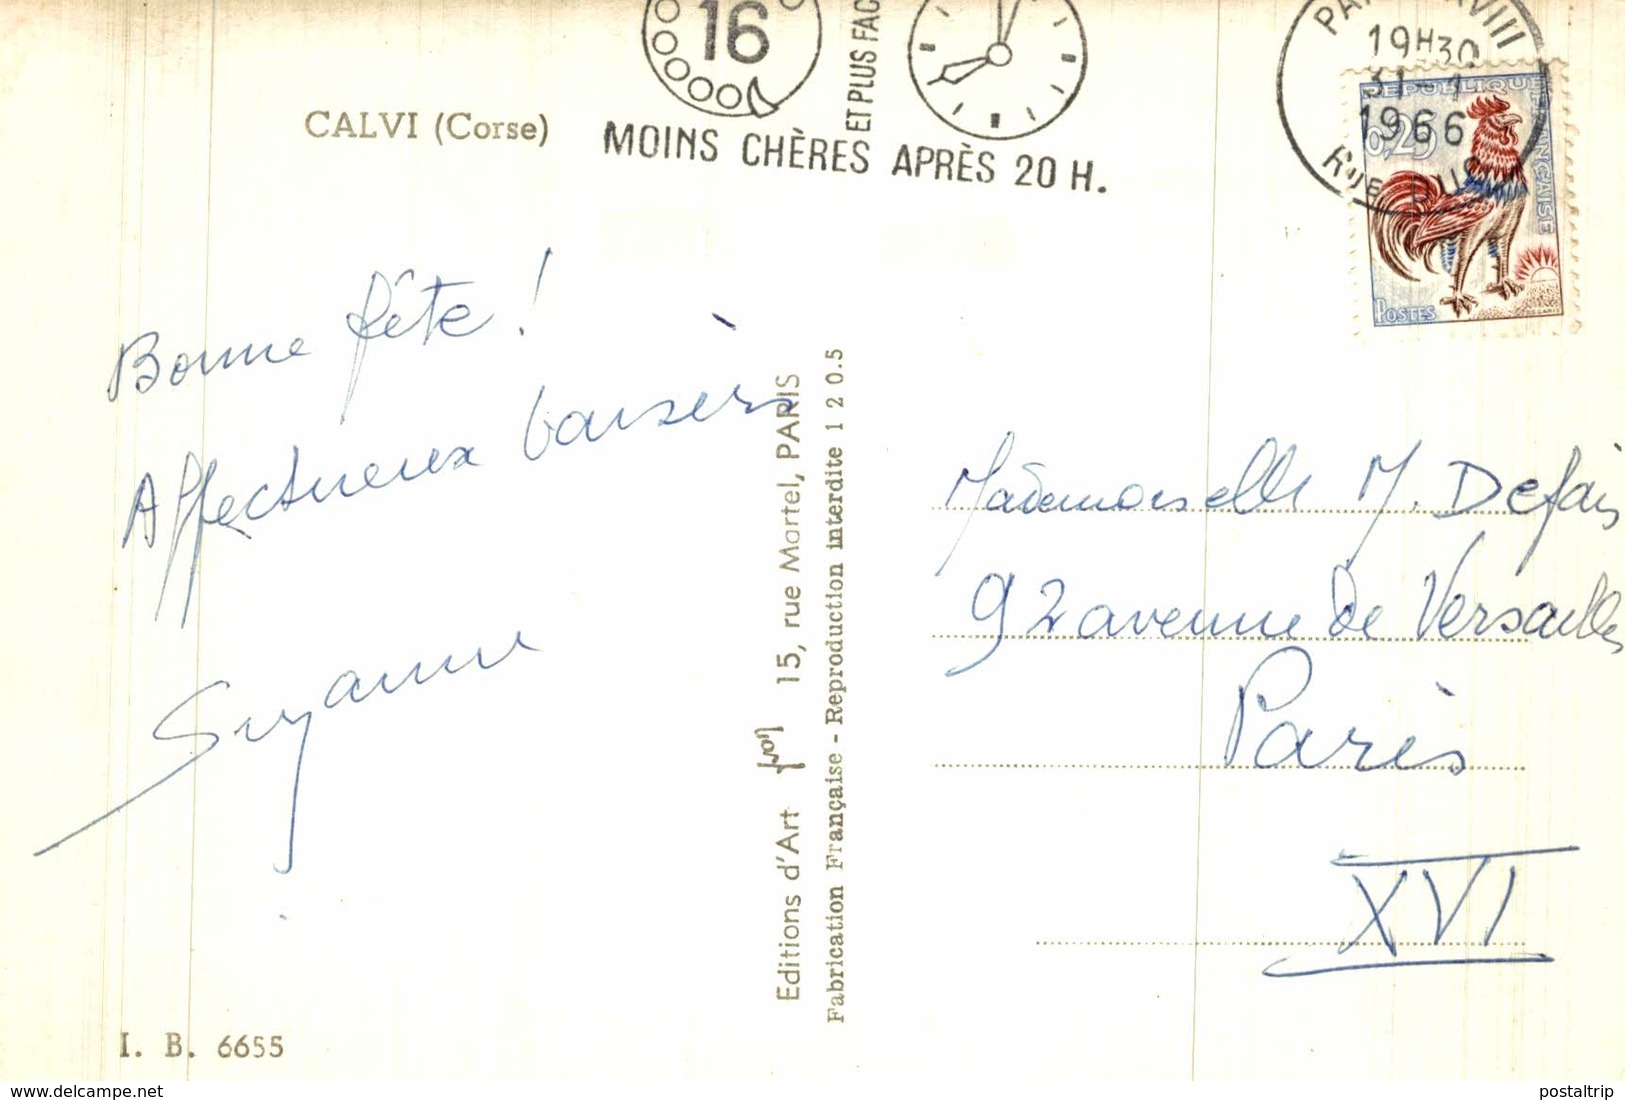 16
ET PLUS FAC
MOINS CHÈRES APRÈS 20 H.
CALVI (Corse)
19H30
31-1
1966
RUE DU S
REPUBLIQUE FRANÇAISE
0,25
POSTES
Bonne fête !
Affectueux baisers
Suzanne
Editions d'Art yvon 15, rue Martel, PARIS
Fabrication Française - Reproduction interdite 1 2 0.5
Mademoiselle M. Defais
92 avenue de Versailles
Paris
XVI
I. B. 6655
delcampe.net
postaltrip